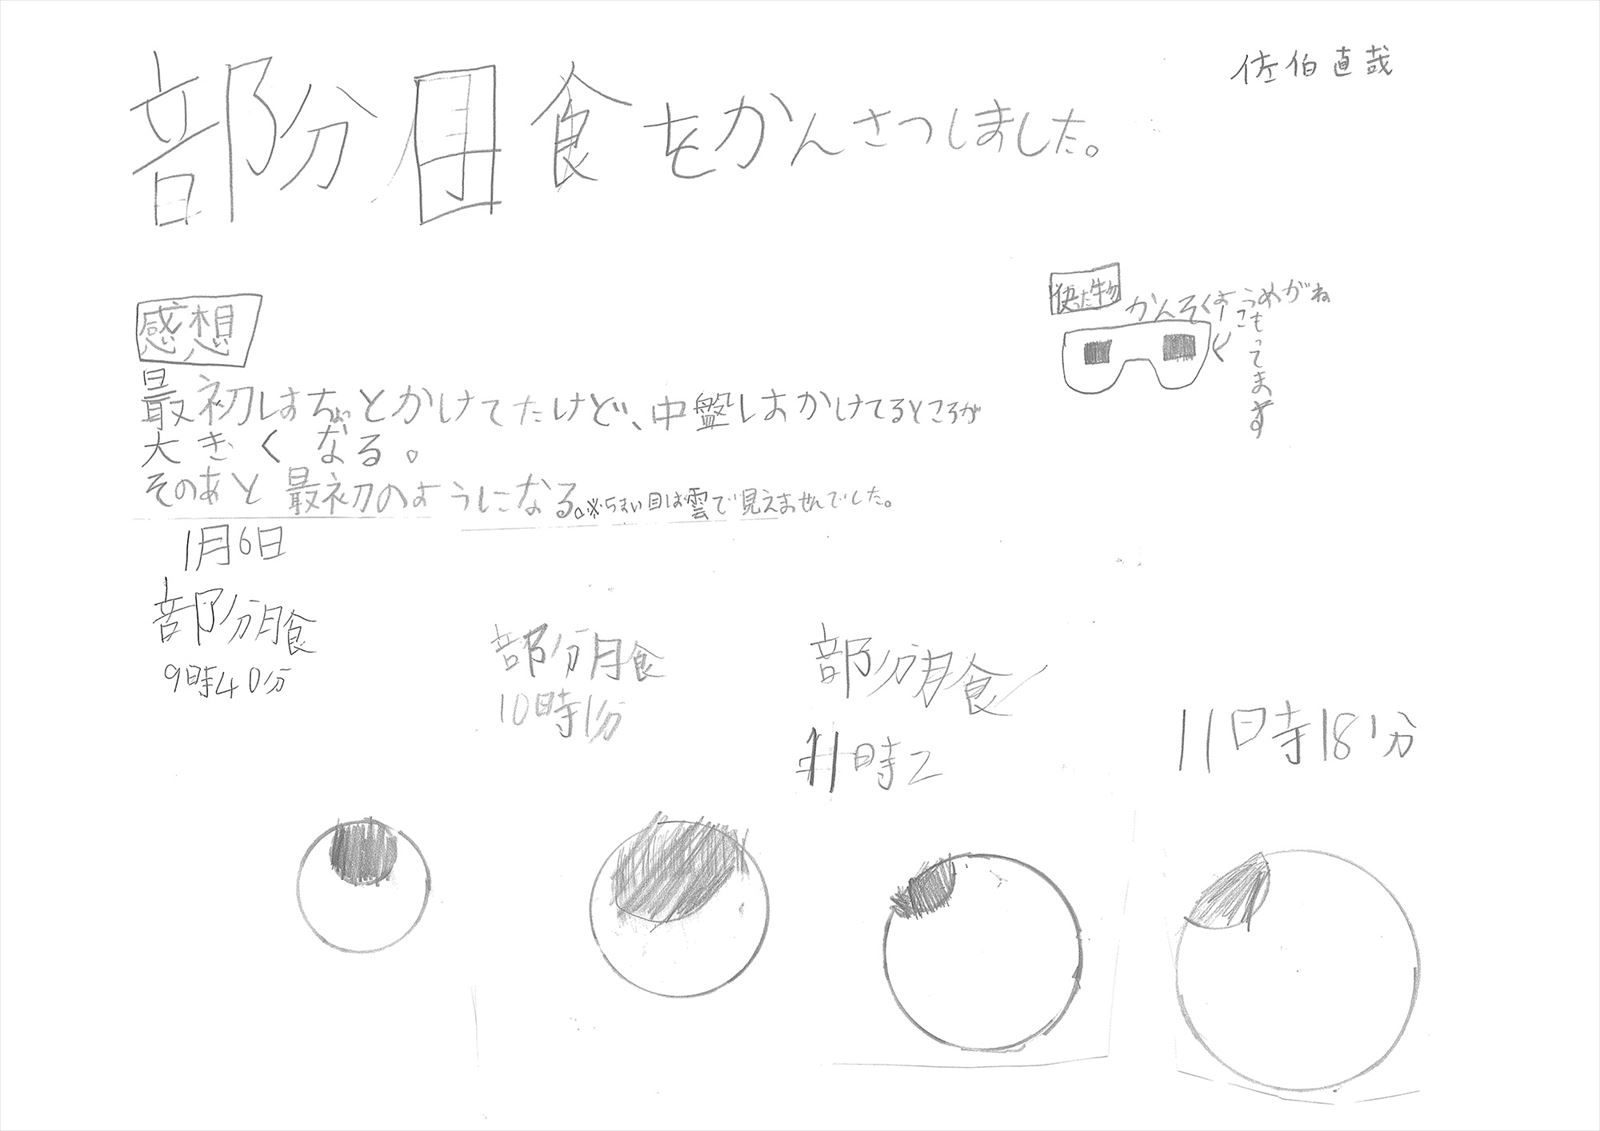 部分月食をかんさつしました。
佐伯直哉
使った物
かんそくようめがね
もってます
感想
最初はちょっとかけてたけど、中盤はかけてるところが
大きくなる。
そのあと最初のようになる。※5まい目は雲で見えませんでした。
1月6日
部分月食
9時40分
部分月食
10時1分
部分月食
11時2
11時18分